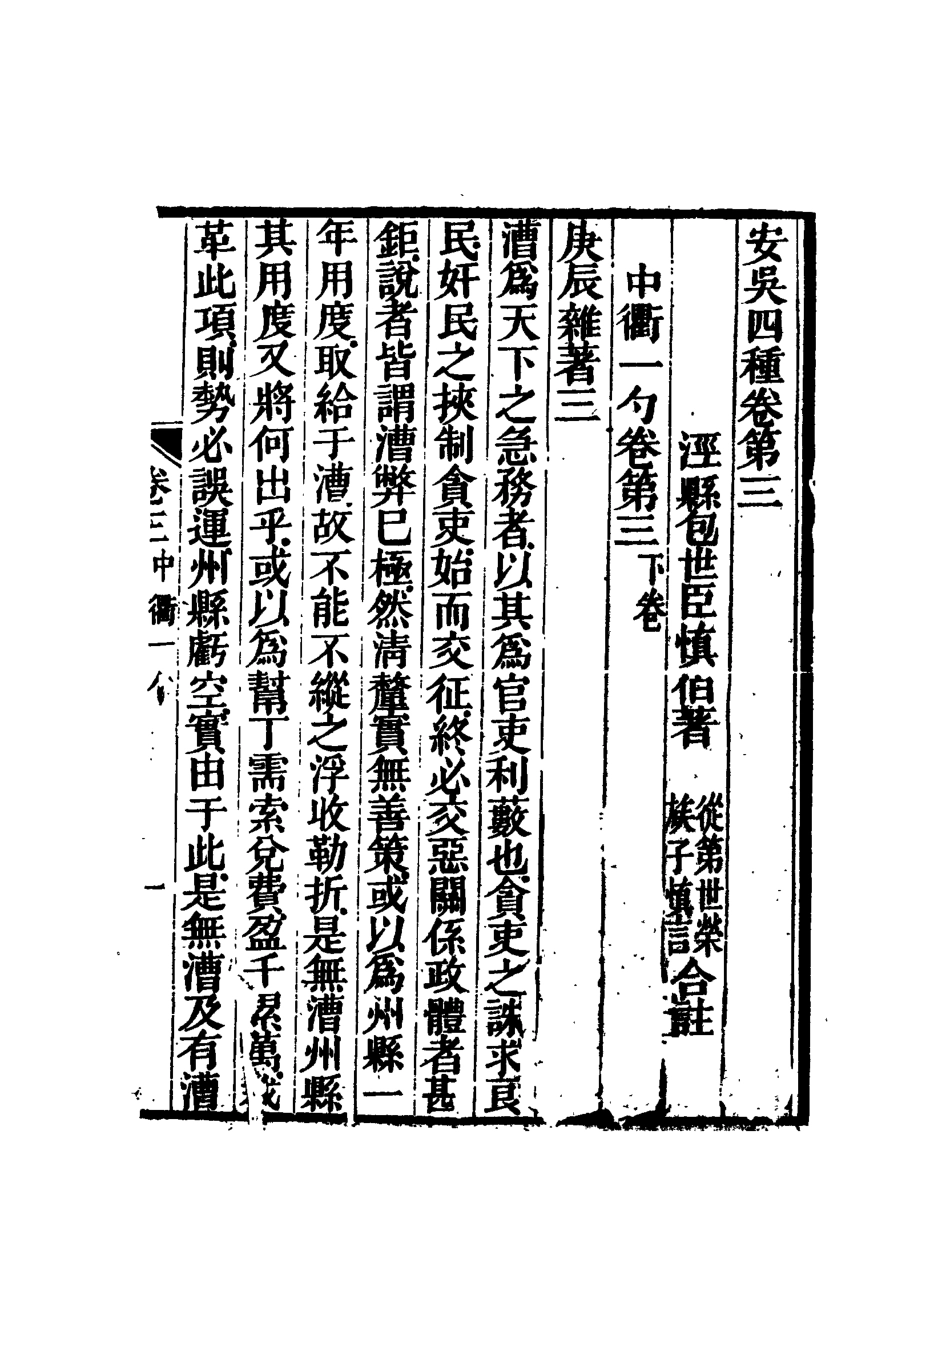 安吳四種卷第三
涇縣包世臣慎伯著 從弟世榮 族子慎言 合註
中衢一勺卷第三 下卷
庚辰雜著三
漕為天下之急務者以其為官吏利藪也貪吏之誅求良
民奸民之挾制貪吏始而交征終必交惡關係政體者甚
鉅說者皆謂漕弊已極然清釐實無善策或以為州縣一
年用度取給于漕故不能不縱之浮收勒折是無漕州縣
其用度又將何出乎或以為幫丁需索兌費盈千累萬或
革此項則勢必誤運州縣虧空實由于此是無漕及有漕
卷三 中衢一勺 一